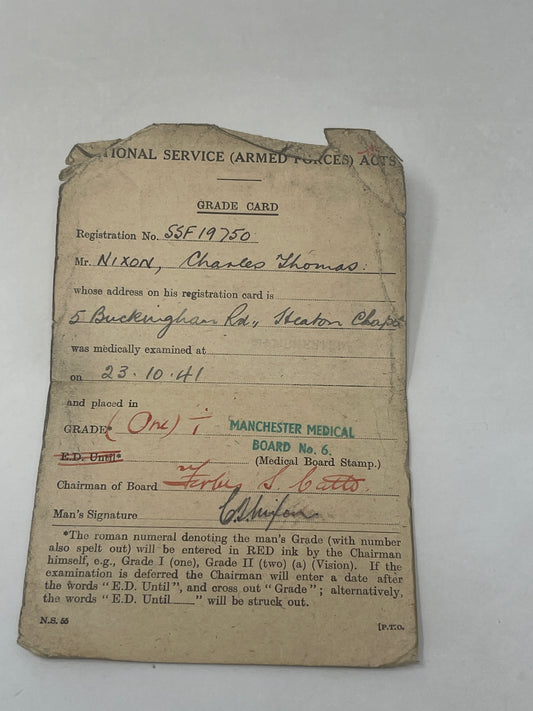 TIONAL SERVICE (ARMED FORCES) ACTS
GRADE CARD
Registration No. SSF19750
Mr. NIXON, Charles Thomas.
whose address on his registration card is
5 Buckingham Rd., Heaton Chapel
was medically examined at
on 23.10.41
and placed in
GRADE* (One) I
MANCHESTER MEDICAL
BOARD No. 6.
E.D. Until* (Medical Board Stamp.)
Chairman of Board
Man's Signature C Nixon
*The roman numeral denoting the man's Grade (with number
also spelt out) will be entered in RED ink by the Chairman
himself, e.g., Grade I (one), Grade II (two) (a) (Vision). If the
examination is deferred the Chairman will enter a date after
the words "E.D. Until", and cross out "Grade"; alternatively,
the words "E.D. Until____" will be struck out.
N.S. 55 [P.T.O.